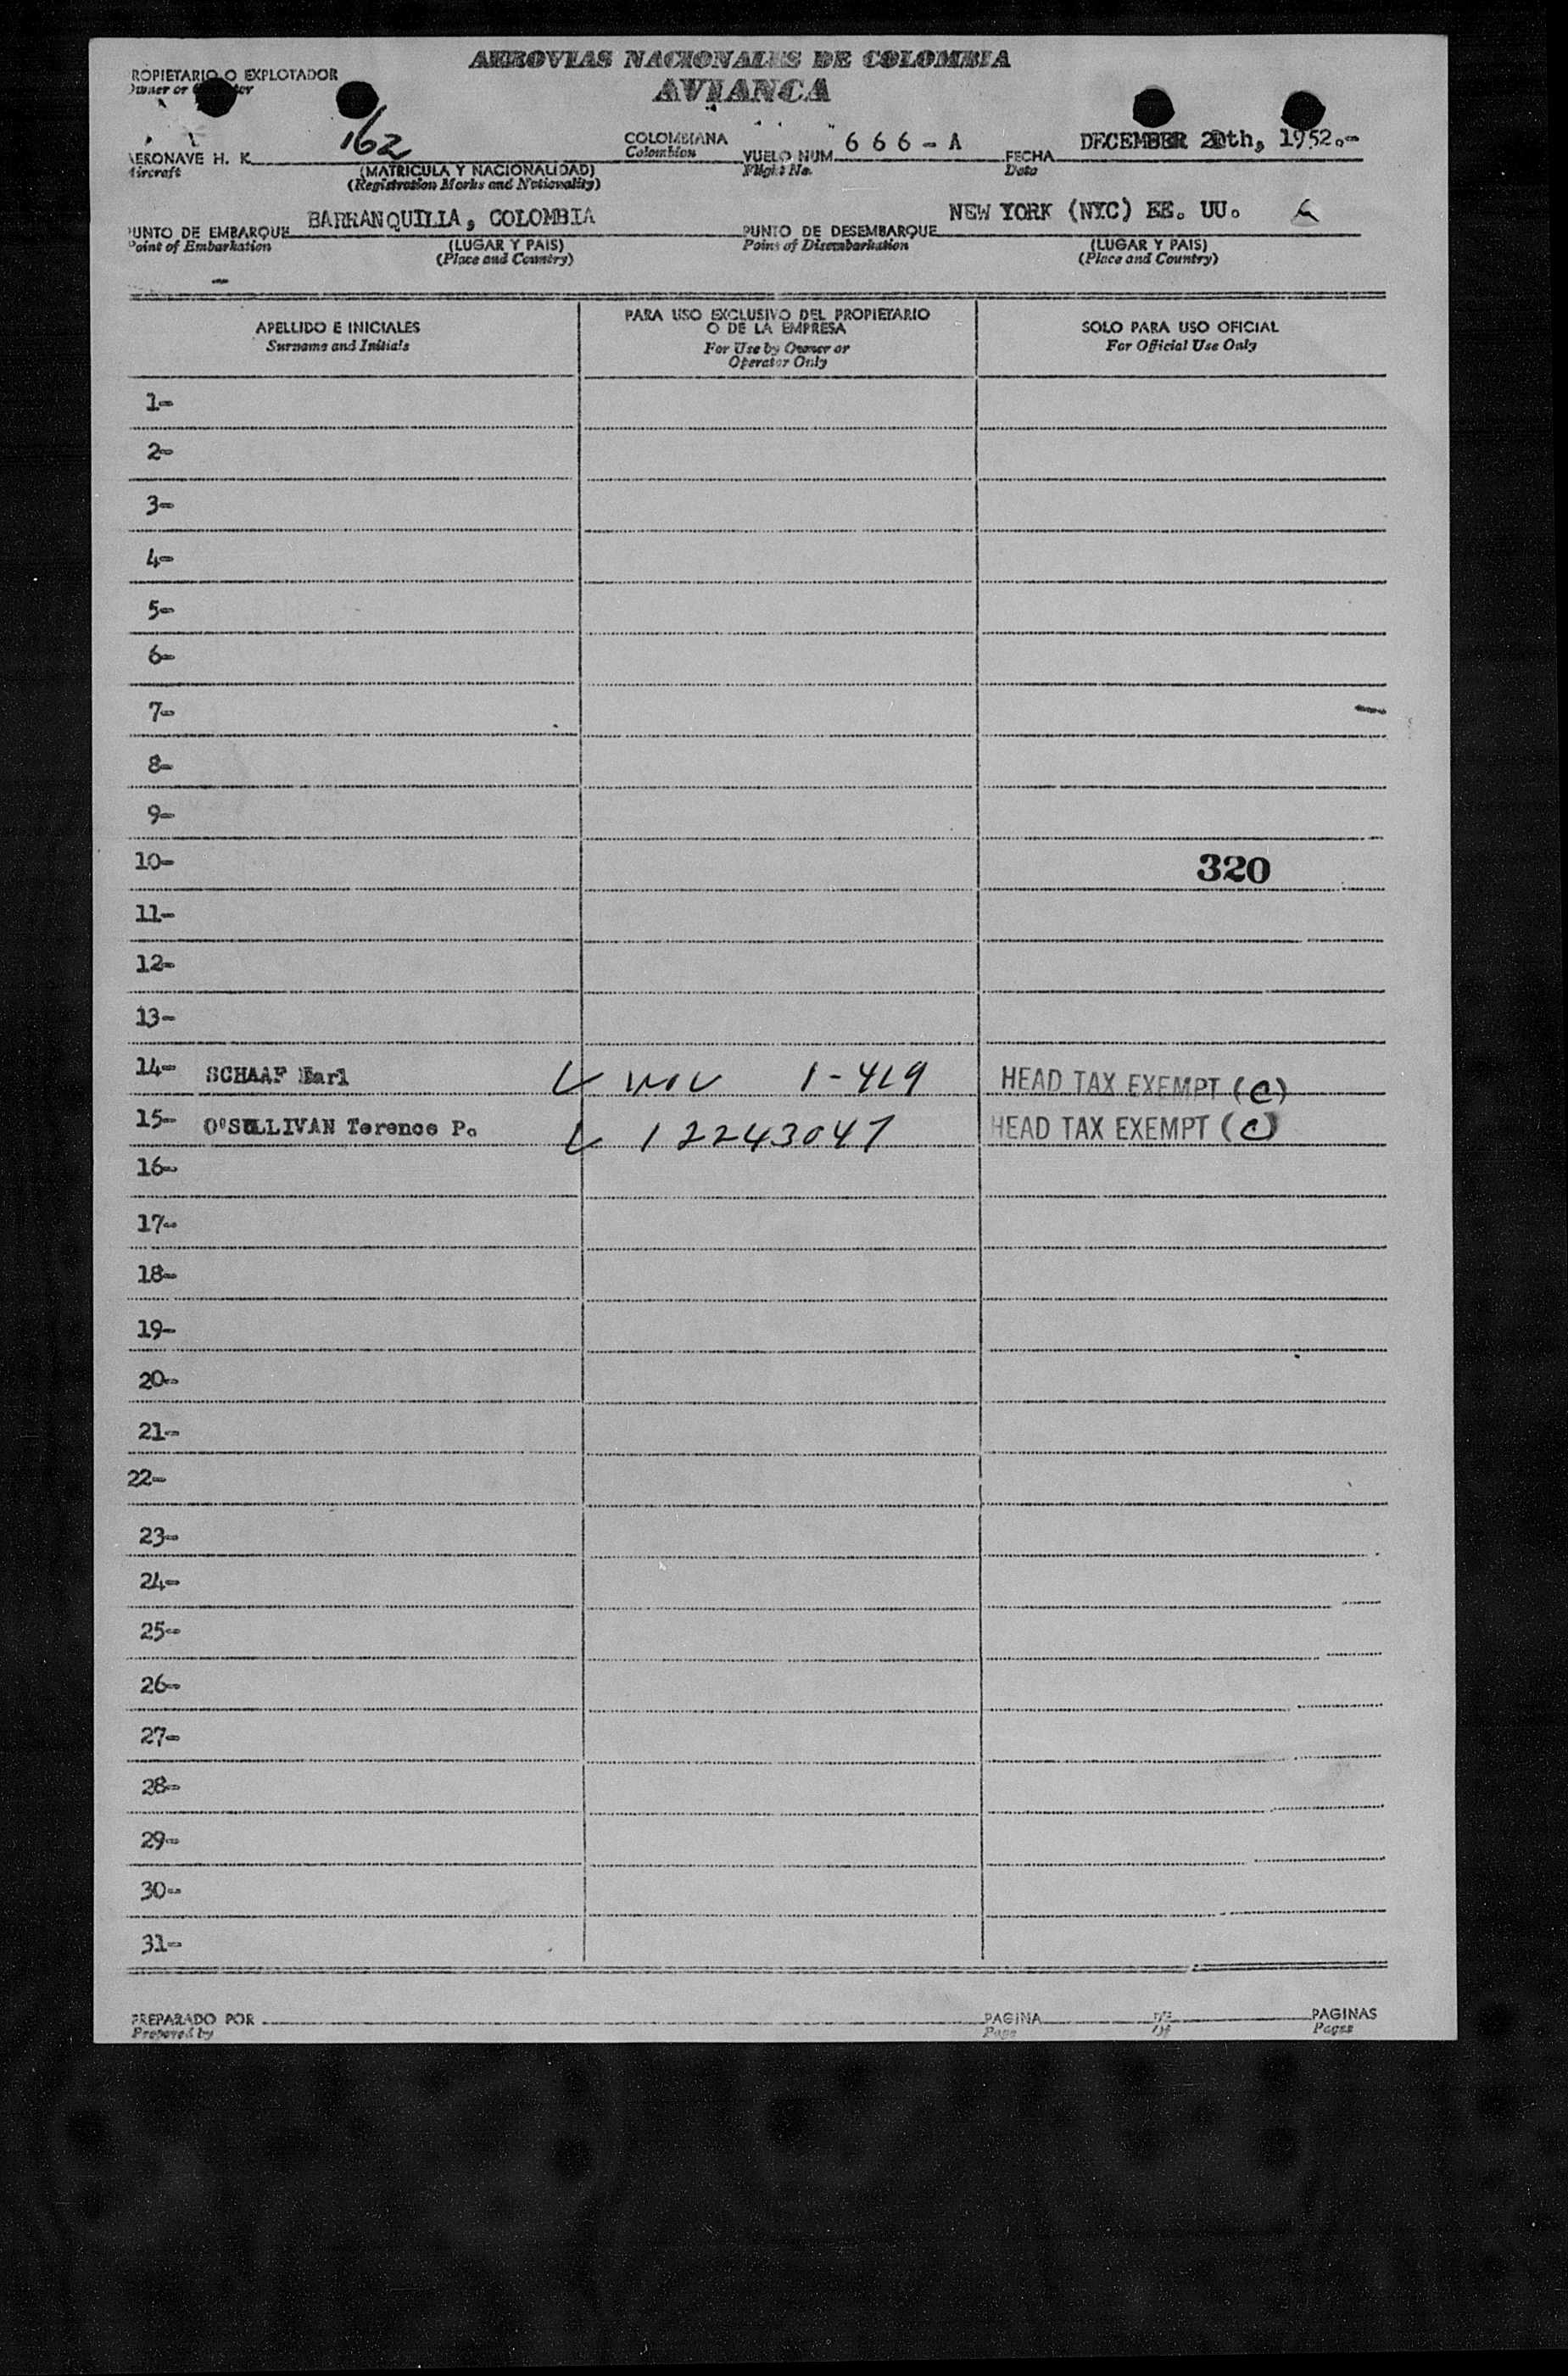 AEROVIAS NACIONALES DE COLOMBIA
AVIANCA
ROPIETARIO O EXPLOTADOR
Owner or
AERONAVE H. K. 162 COLOMBIANA VUELO NUM. 666-A FECHA DECEMBER 20th, 1952.-
Aircraft (MATRICULA Y NACIONALIDAD) Colombian Flight No. Date
(Registration Marks and Nationality)
PUNTO DE EMBARQUE BARRANQUILLA, COLOMBIA PUNTO DE DESEMBARQUE NEW YORK (NYC) EE. UU.
Point of Embarkation (LUGAR Y PAIS) Point of Disembarkation (LUGAR Y PAIS)
(Place and Country) (Place and Country)
APELLIDO E INICIALES PARA USO EXCLUSIVO DEL PROPIETARIO O DE LA EMPRESA SOLO PARA USO OFICIAL
Surname and Initials For Use by Owner or Operator Only For Official Use Only
1-
2-
3-
4-
5-
6-
7-
8-
9-
10- 320
11-
12-
13-
14- SCHAAF Earl 1-419 HEAD TAX EXEMPT (C)
15- O'SULLIVAN Terence P. 12243047 HEAD TAX EXEMPT (C)
16-
17-
18-
19-
20-
21-
22-
23-
24-
25-
26-
27-
28-
29-
30-
31-
PREPARADO POR PAGINA DE PAGINAS
Prepared by Page Of Pages